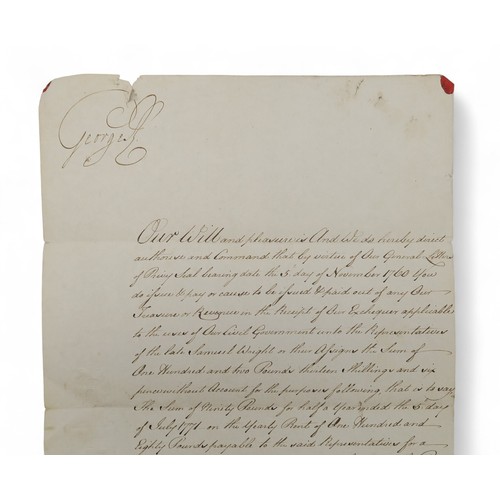 George R
Our Will and pleasure is And We do hereby direct
authorise and Command that by virtue of Our General Letters
of Privy Seal bearing date the 5 day of November 1760 You
do issue & pay or cause to be issued & paid out of any Our
Treasure or Revenue in the Receipt of Our Exchequer applicable
to the uses of Our Civil Government unto the Representatives
of the late Samuel Wright or their Assigns the Sum of
One Hundred and two Pounds thirteen Shillings and six
pence without Account for the purposes following, that is to say
The Sum of Ninety Pounds for half a Year ended the 5 day
of July 1771 on the Yearly Rent of One Hundred and
Eighty Pounds payable to the said Representatives for a